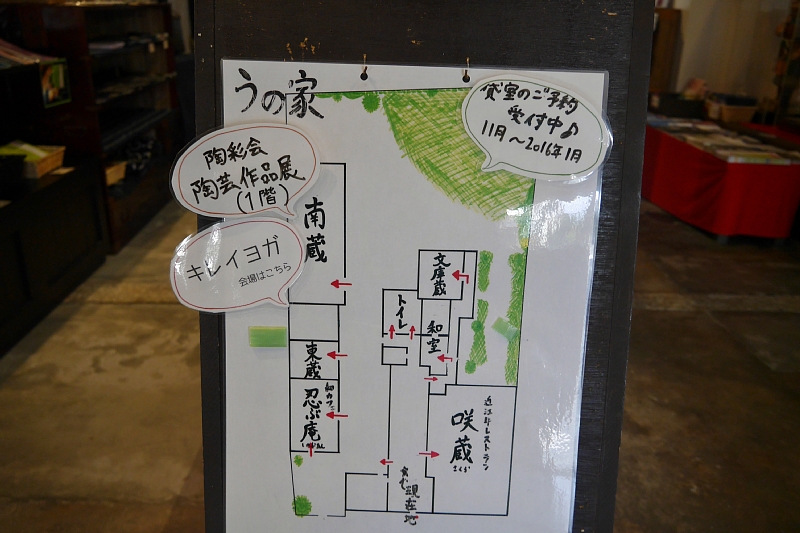 うの家
貸室のご予約
受付中♪
11月～2016年1月
陶彩会
陶芸作品展
(1階)
キレイヨガ
会場はこちら
南蔵
文庫蔵
トイレ
和室
東蔵
忍ぶ庵
近江牛レストラン
咲蔵
さくら
現在地